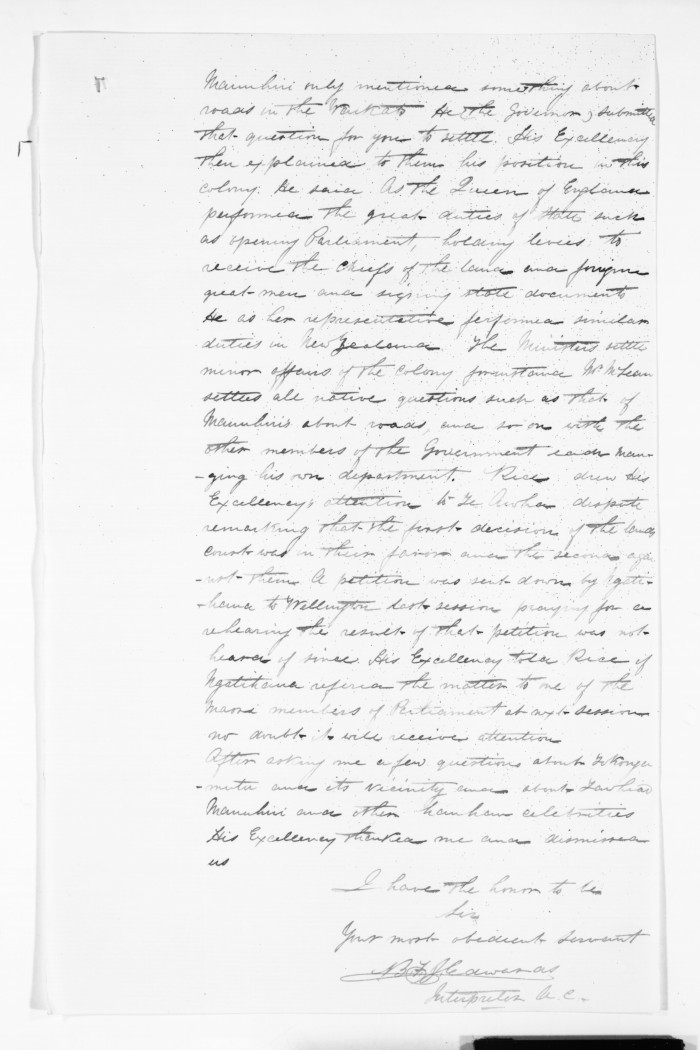 Manuhiri only mentioned something about
roads in the Waikato He (the Governor) submitted
that question for you to settle. His Excellency
then explained to them his position in this
colony. He said As the Queen of England
performed the great duties of State such
as opening Parliament, holding levies to
receive the Chiefs of the land and foreign
great men and signing state documents
He as her representative performed similar
duties in New Zealand. The Ministers settle
minor affairs of the Colony forinstance Mr McLean
settles all native questions such as that of
Manuhiris about roads, and so on with the
other members of the Government each man-
-ging his own department. Rice drew His
Excellency's attention to Te Aroha dispute
remarking that the first decision of the lands
court was in their favor and the second agai
-nst them A petition was sent down by Ngati-
-haua to Wellington last session praying for a
rehearing the result of that petition was not
heard of since. His Excellency told Rice if
Ngatihaua referred the matter to one of the
Maori members of Parliament at next session
no doubt it will receive attention
After asking me a few questions about Tokanga
-mutu and its vicinity and about Tawhiao
Manuhiri and other hauhau celebrities
His Excellency thanked me and dismissed
us
I have the honor to be
Sir
Your most obedient servant
Edwards
Interpreter A. C.